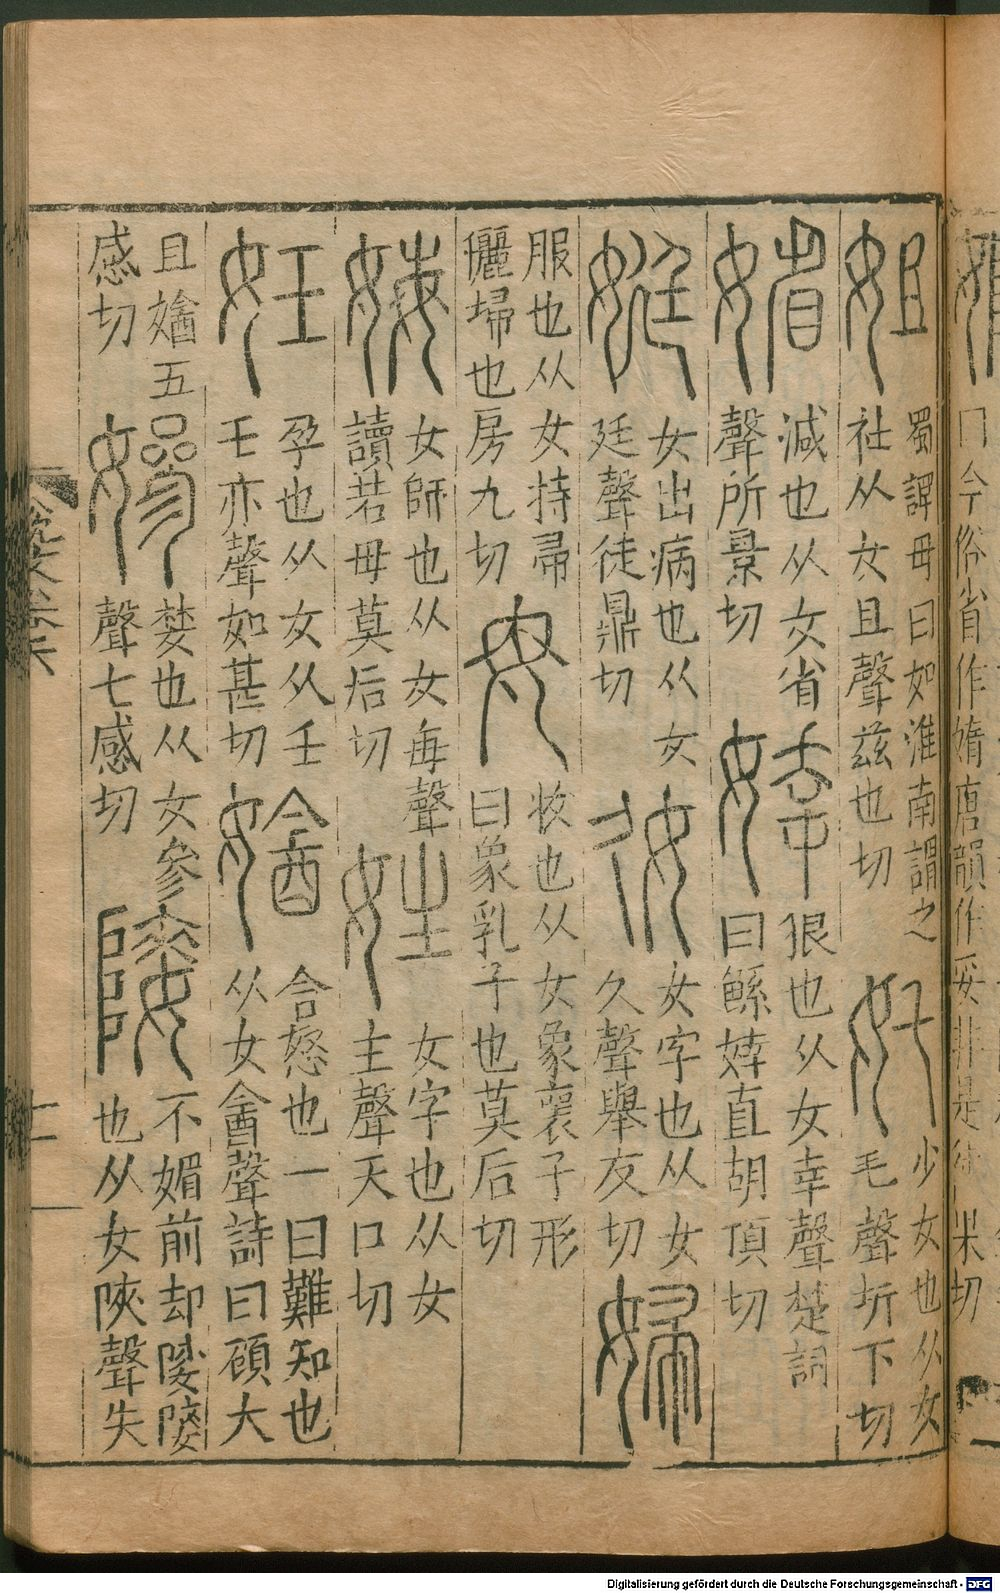 今俗省作媠唐韻作妥非是徒果切
姐
蜀譯母曰如淮南謂之
社从女且聲兹也切
奼
少女也从女
毛聲圻下切
媘
減也从女省
聲所景切
婞
狠也从女幸聲楚詞
曰鯀婞直胡頂切
娗
女出病也从女
廷聲徒鼎切
㚲
女字也从女
久聲舉友切
婦
服也从女持帚
灑埽也房九切
母
牧也从女象褱子形
曰象乳子也莫后切
娒
女師也从女每聲
讀若母莫后切
妵
女字也从女
主聲天口切
妊
孕也从女从壬
壬亦聲如甚切
㜝
含怒也一曰難知也
从女酓聲詩曰碩大
且㜝五
感切
㜗
婪也从女參
聲七感切
不媚前却
也从女陝聲失
說文卷六
十一
Digitalisierung gefördert durch die Deutsche Forschungsgemeinschaft - DFG